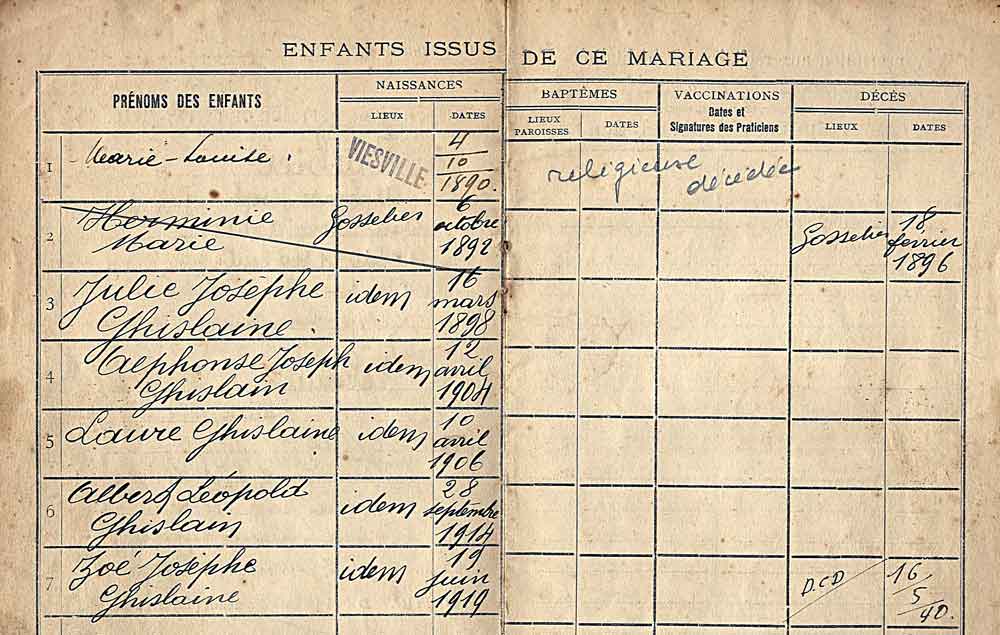 ENFANTS ISSUS DE CE MARIAGE
PRÉNOMS DES ENFANTS
NAISSANCES
LIEUX
DATES
BAPTÊMES
LIEUX
PAROISSES
DATES
VACCINATIONS
Dates et
Signatures des Praticiens
DÉCÈS
LIEUX
DATES
1
Marie-Louise.
VIESVILLE
4
10
1890.
religieuse
décédée
2
Herminie
Marie
Gosselies
6
octobre
1892
Gosselies
18
février
1896
3
Julie Josèphe
Ghislaine.
idem
16
mars
1898
4
Alphonse Joseph
Ghislain
idem
12
avril
1904
5
Laure Ghislaine
idem
10
avril
1906
6
Albert Léopold
Ghislain
idem
28
septembre
1914
7
Zoé Josèphe
Ghislaine
idem
19
juin
1919
D.C.D
16/
5/
40.